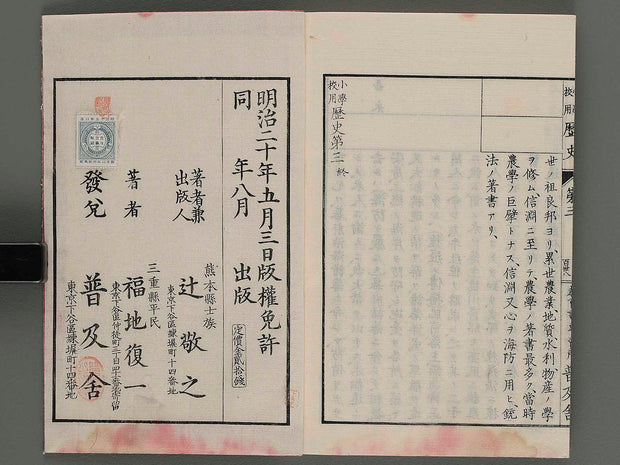 小學校用歷史
第三
普及舍
世ノ祖良邦ヨリ、累世農業、地質水利物産ノ學
ヲ修ム、信淵ニ至リテ、農學ノ著書最多ク、當時
農學ノ巨擘トナス、信淵又心ヲ海防ニ用ヒ、銃
法ノ著書アリ、
小學校用歷史第三終
明治二十年五月三日版權免許
同年八月出版
定價金貳拾錢
著者兼出版人
熊本縣士族
辻敬之
東京下谷區練塀町十四番地
著者
三重縣平民
福地復一
東京下谷區仲徒町
寄留
發兌
普及舍
東京下谷區練塀町十四番地